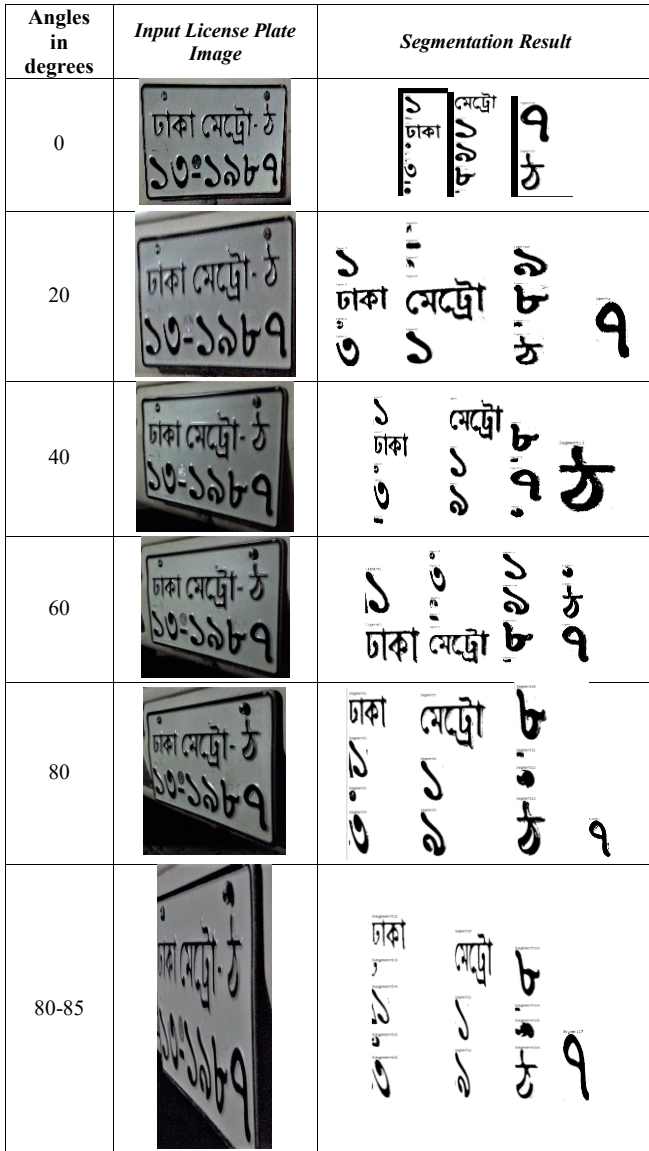 Angles in degrees
Input License Plate Image
Segmentation Result
0
ঢাকা মেট্রো- ঠ
১৩-১৯৮৭
১
ঢাকা
৩
মেট্রো
১
৯
৮
৭
ঠ
20
ঢাকা মেট্রো- ঠ
১৩-১৯৮৭
১
ঢাকা
৩
মেট্রো
১
৯
৮
ঠ
৭
40
ঢাকা মেট্রো- ঠ
১৩-১৯৮৭
১
ঢাকা
৩
মেট্রো
১
৯
৮
৭
ঠ
60
ঢাকা মেট্রো- ঠ
১৩-১৯৮৭
১
ঢাকা
৩
মেট্রো
১
৯
৮
ঠ
৭
80
ঢাকা মেট্রো- ঠ
১৩-১৯৮৭
ঢাকা
১
৩
মেট্রো
১
৯
৮
ঠ
৭
80-85
ঢাকা মেট্রো- ঠ
১৩-১৯৮৭
ঢাকা
১
৩
মেট্রো
১
৯
৮
ঠ
৭